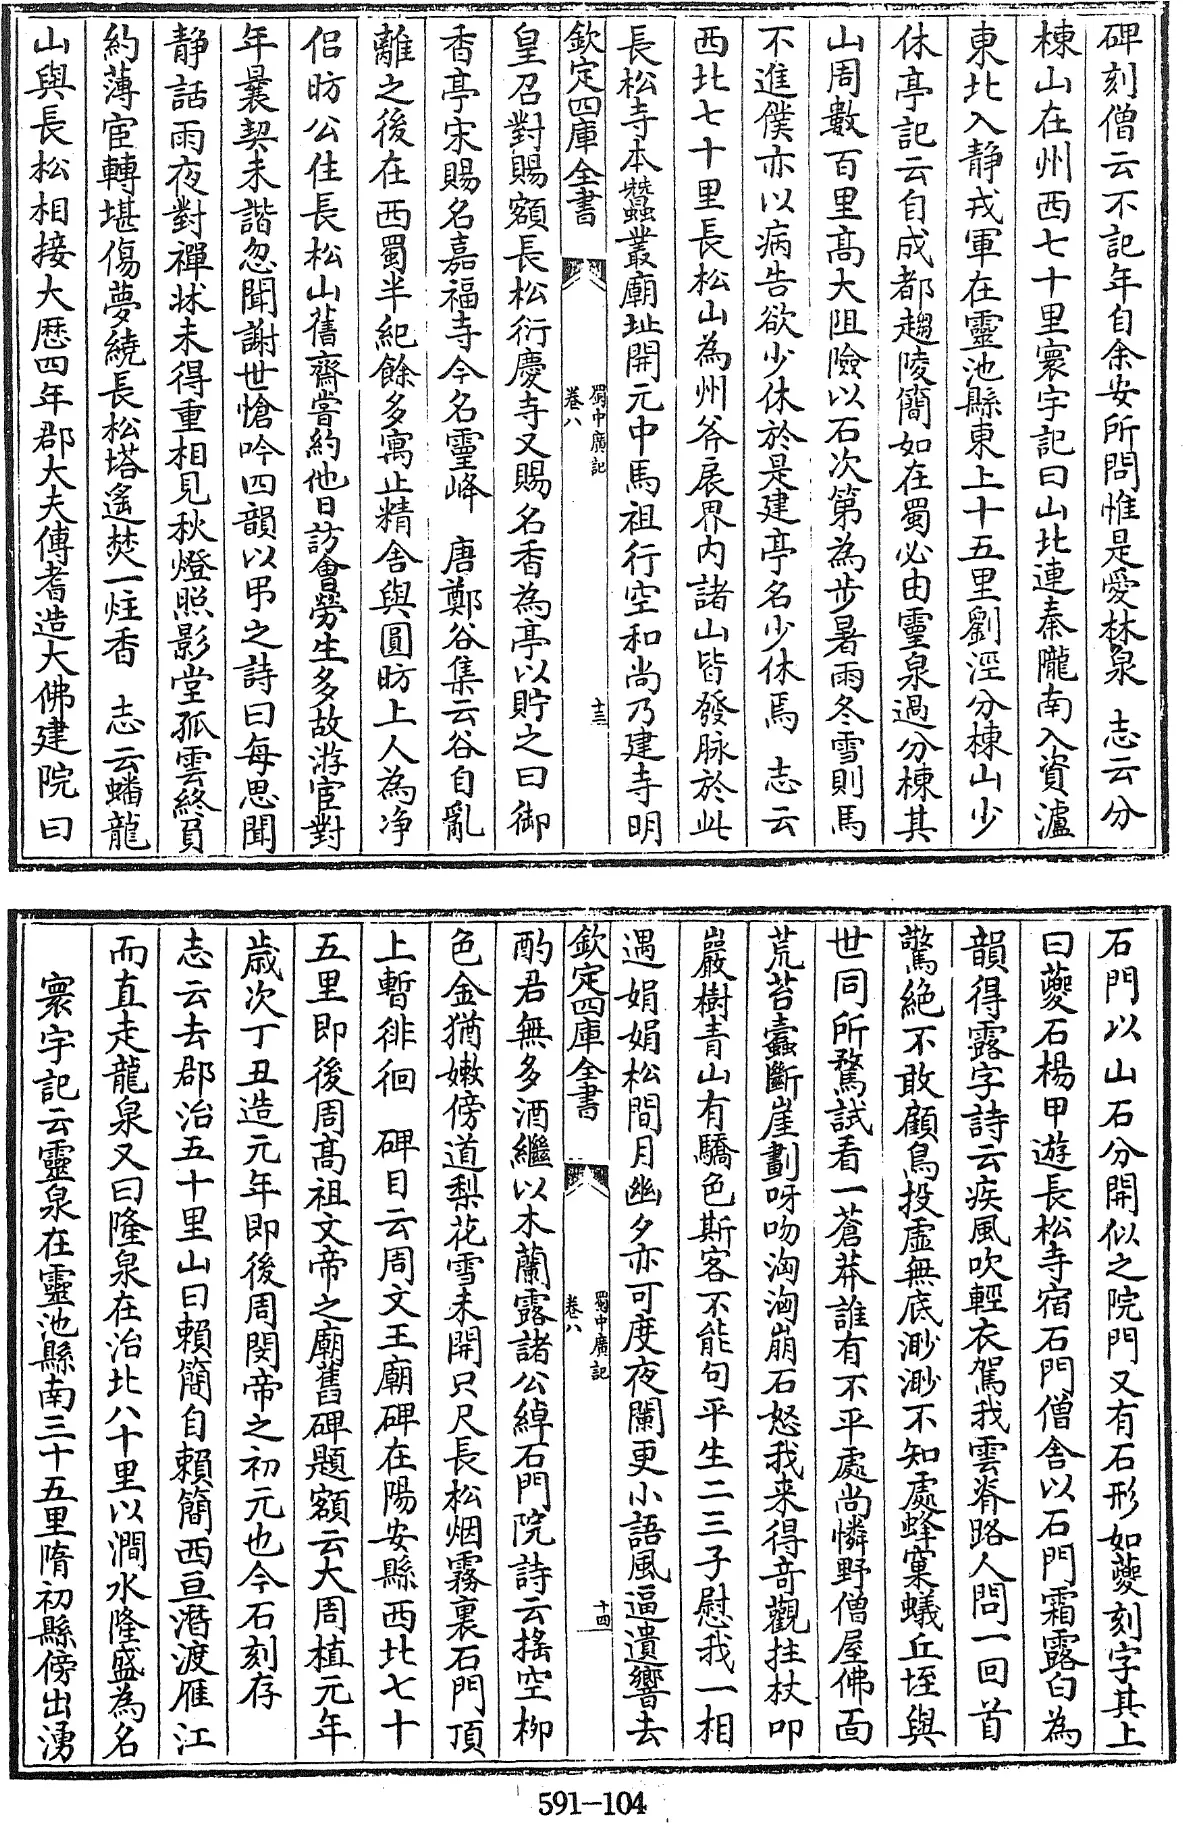 碑刻僧云不記年自余安所問惟是愛林泉　志云分
棟山在州西七十里寰宇記曰山北連秦隴南入資瀘
東北入静戎軍在靈池縣東上十五里劉涇分棟山少
休亭記云自成都趨陵簡如在蜀必由靈泉過分棟其
山周數百里高大阻險以石次第為步暑雨冬雪則馬
不進僕亦以病告欲少休於是建亭名少休焉　志云
西北七十里長松山為州斧扆界内諸山皆發脉於此
長松寺本蠶叢廟址開元中馬祖行空和尚乃建寺明
欽定四庫全書　蜀中廣記　卷八　十三
皇召對賜額長松衍慶寺又賜名香為亭以貯之曰御
香亭宋賜名嘉福寺今名靈峰　唐鄭谷集云谷自亂
離之後在西蜀半紀餘多寓止精舍與圓昉上人為净
侣昉公住長松山舊齋嘗約他日訪會勞生多故游宦對
年曩契未諧忽聞謝世愴吟四韻以弔之詩曰每思聞
静話雨夜對禪牀未得重相見秋燈照影堂孤雲終負
約薄宦轉堪傷夢繞長松塔遙焚一炷香　志云蟠龍
山與長松相接大厯四年郡大夫傅耆造大佛建院曰
石門以山石分開似之院門又有石形如夔刻字其上
曰夔石楊甲遊長松寺宿石門僧舍以石門霜露白為
韻得露字詩云疾風吹輕衣駕我雲脊路人問一回首
驚絶不敢顧鳥投虚無底渺渺不知處蜂窠蟻丘垤與
世同所騖試看一蒼莽誰有不平處尚憐野僧屋佛面
荒苔蠹斷崖劃呀吻洶洶崩石怒我来得竒觀拄杖叩
巖樹青山有驕色斯客不能句平生二三子慰我一相
遇娟娟松間月幽夕亦可度夜闌更小語風逼遺響去
欽定四庫全書　蜀中廣記　卷八　十四
酌君無多酒繼以木蘭露諸公綽石門院詩云揺空柳
色金猶嫩傍道梨花雪未開只尺長松烟霧裏石門頂
上暫徘徊　碑目云周文王廟碑在陽安縣西北七十
五里即後周高祖文帝之廟舊碑題額云大周植元年
歲次丁丑造元年即後周閔帝之初元也今石刻存
志云去郡治五十里山曰賴簡自賴簡西亘潛渡雁江
而直走龍泉又曰隆泉在治北八十里以澗水隆盛為名
寰宇記云靈泉在靈池縣南三十五里隋初縣傍出湧
591-104